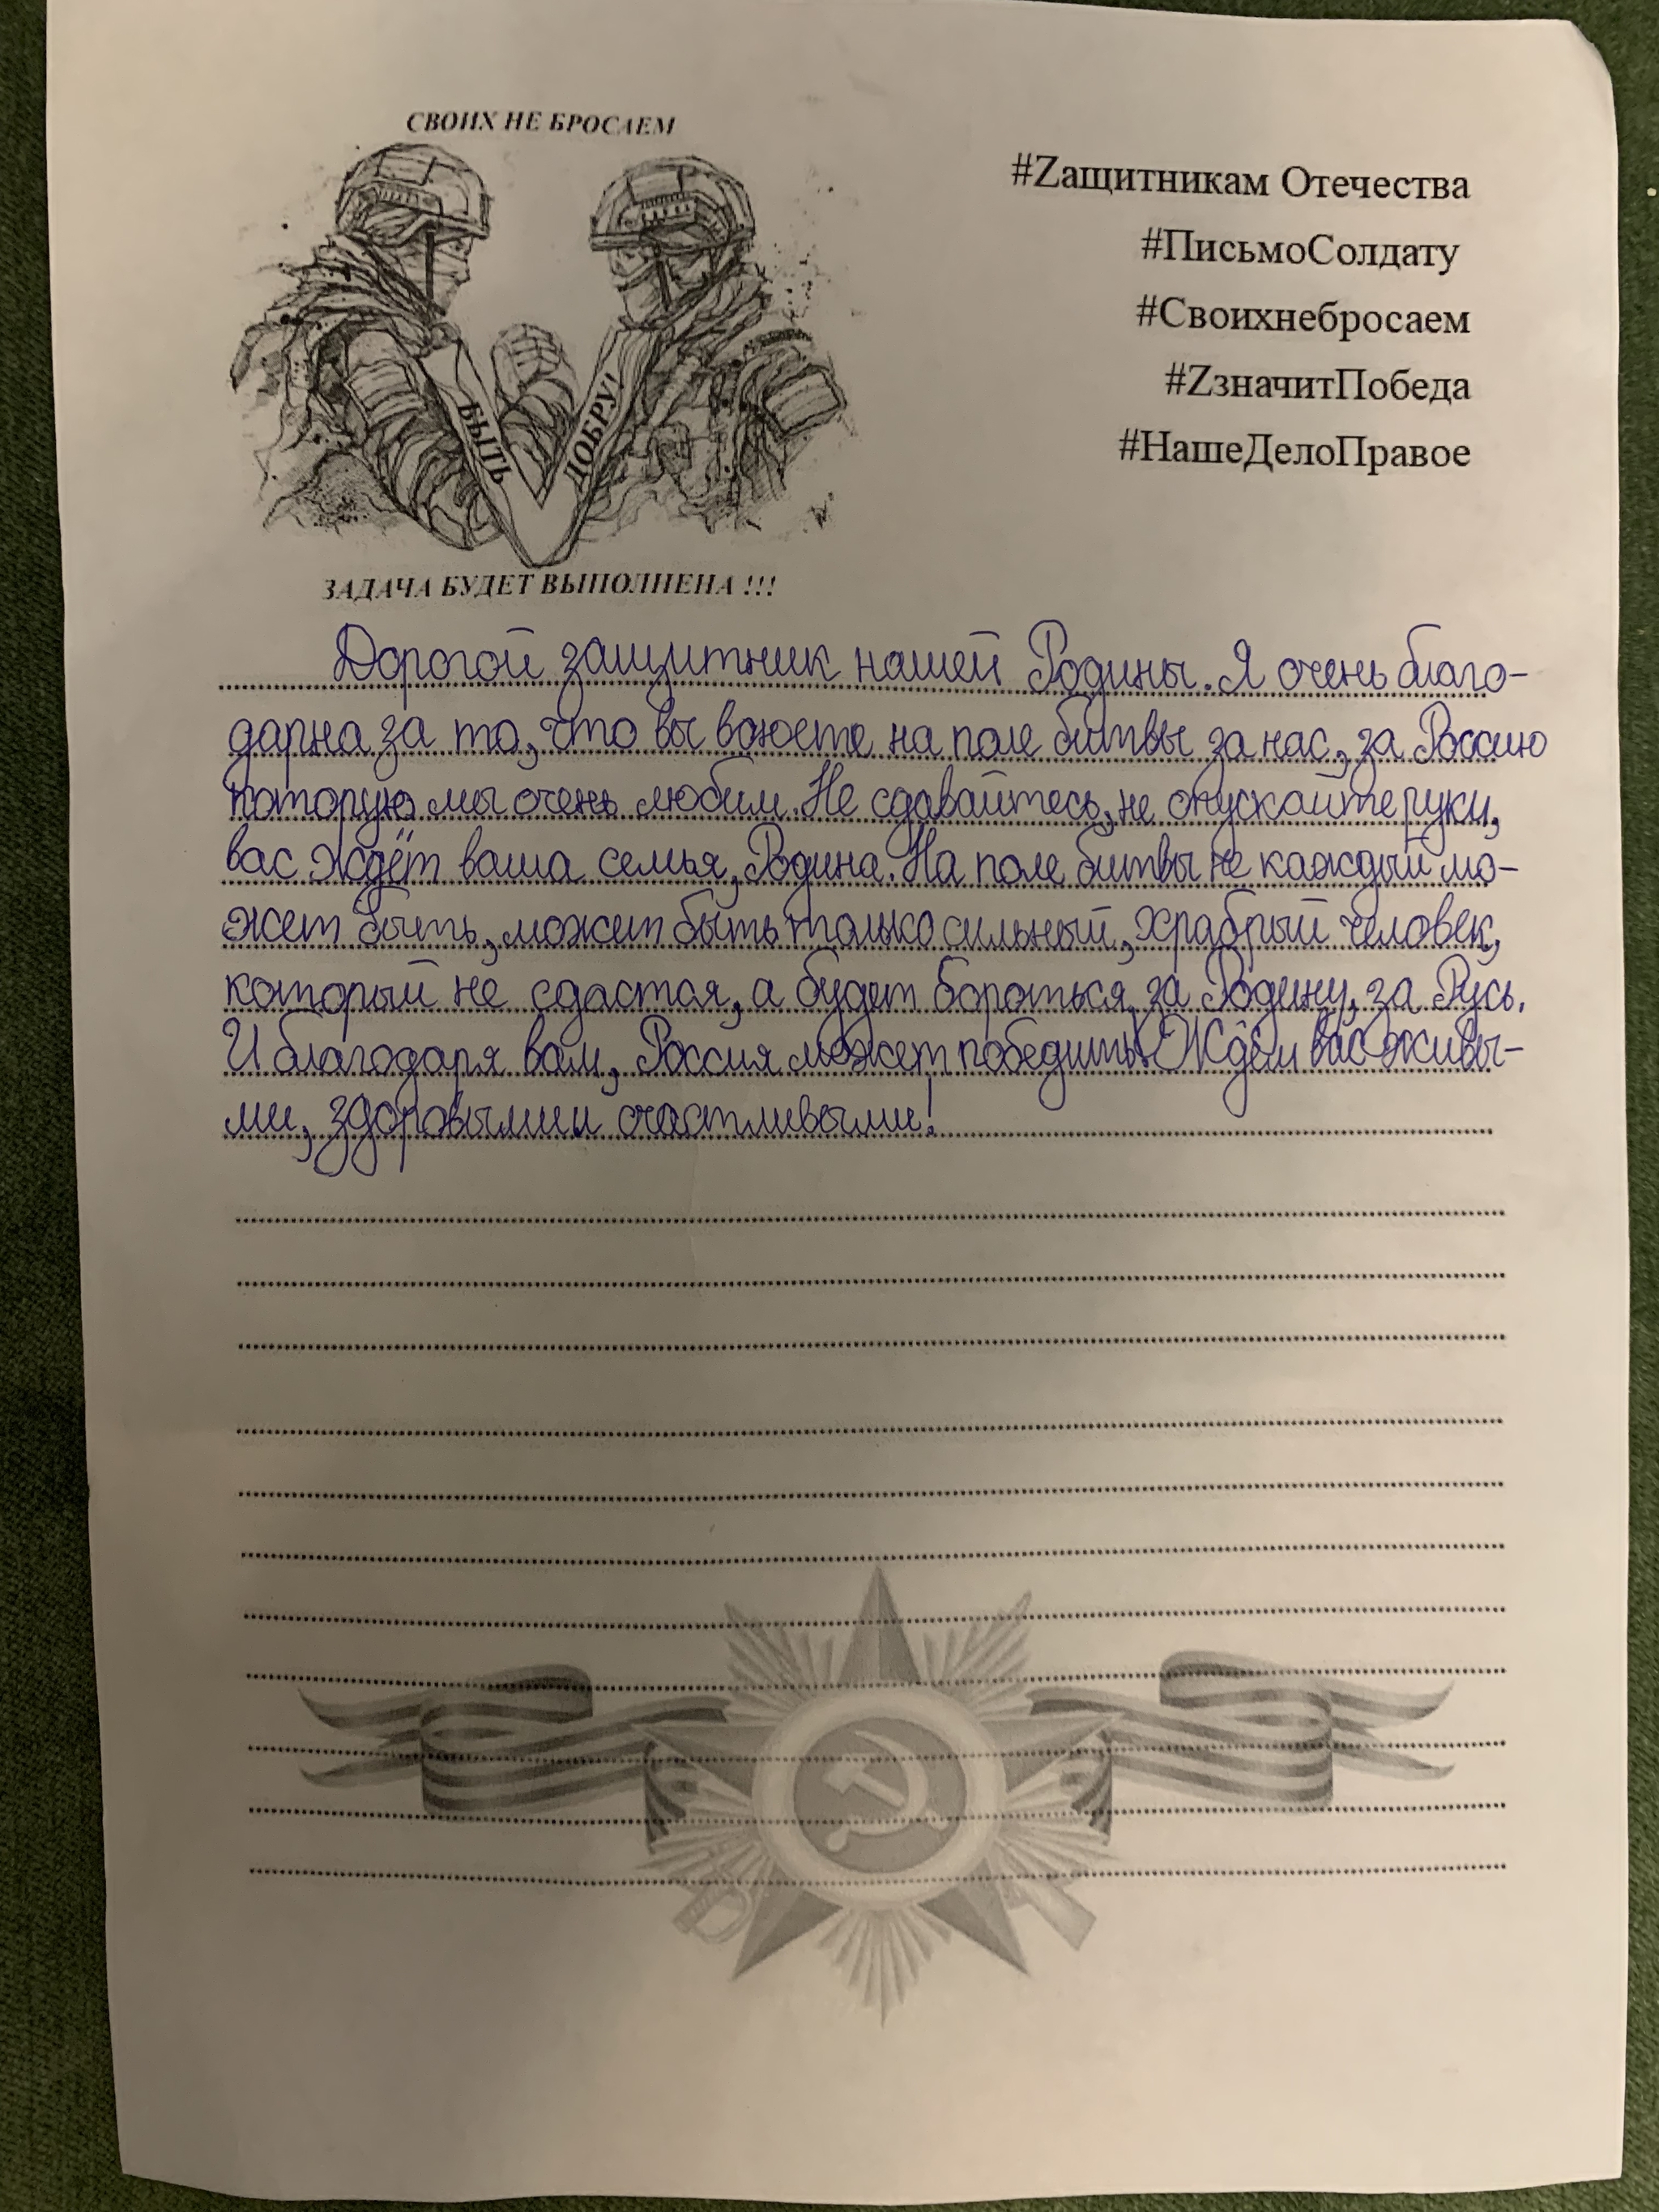 СВОИХ НЕ БРОСАЕМ
БЫТЬ ДОБРУ!
ЗАДАЧА БУДЕТ ВЫПОЛНЕНА !!!
#Zащитникам Отечества
#ПисьмоСолдату
#Своихнебросаем
#ZзначитПобеда
#НашеДелоПравое
Дорогой защитник нашей Родины. Я очень благо-
дарна за то, что вы воюете на поле битвы за нас, за Россию
которую мы очень любим. Не сдавайтесь, не опускайте руки,
вас ждёт ваша семья, Родина. На поле битвы не каждый мо-
жет быть, может быть только сильный, храбрый человек,
который не сдастся, а будет бороться за Родину, за Русь.
И благодаря вам, Россия может победить. Ждём вас живы-
ми, здоровыми и счастливыми!